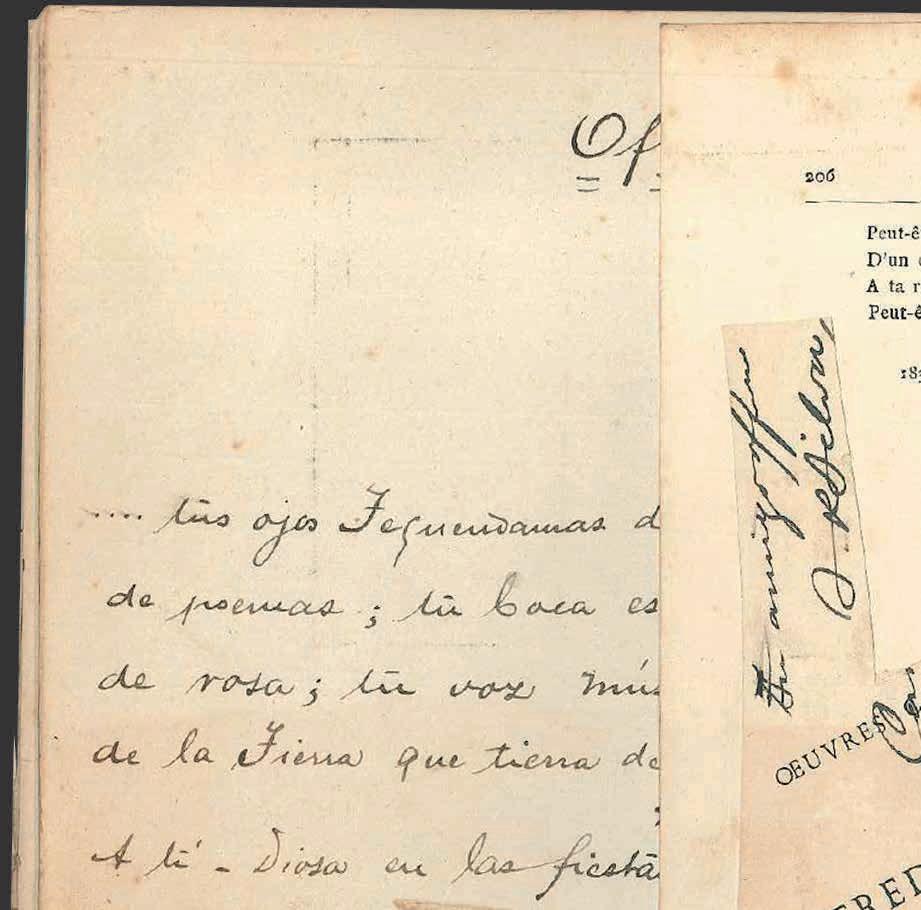 Of
.... tus ojos Tequendamas d
de poemas; tu boca es
de rosa; tu voz mús
de la Tierra que tierra de
A tí - Diosa en las fiesta
206
Peut-ê
D'un
A ta r
Peut-ê
18
Tu amigo affmo
J. A. Silva
OEUVRES